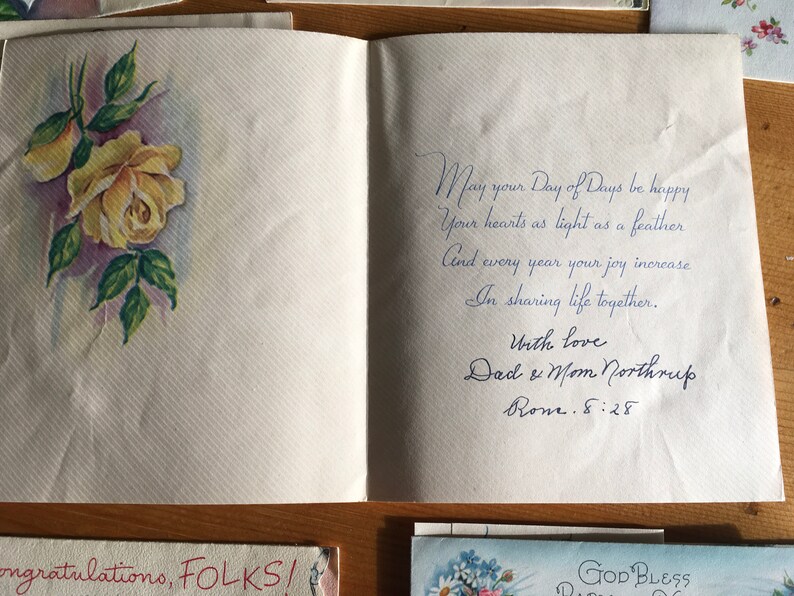 May your Day of Days be happy
Your hearts as light as a feather
And every year your joy increase
In sharing life together.
With love
Dad & Mom Northrup
Rom. 8:28
ongratulations, FOLKS!
GOD BLESS